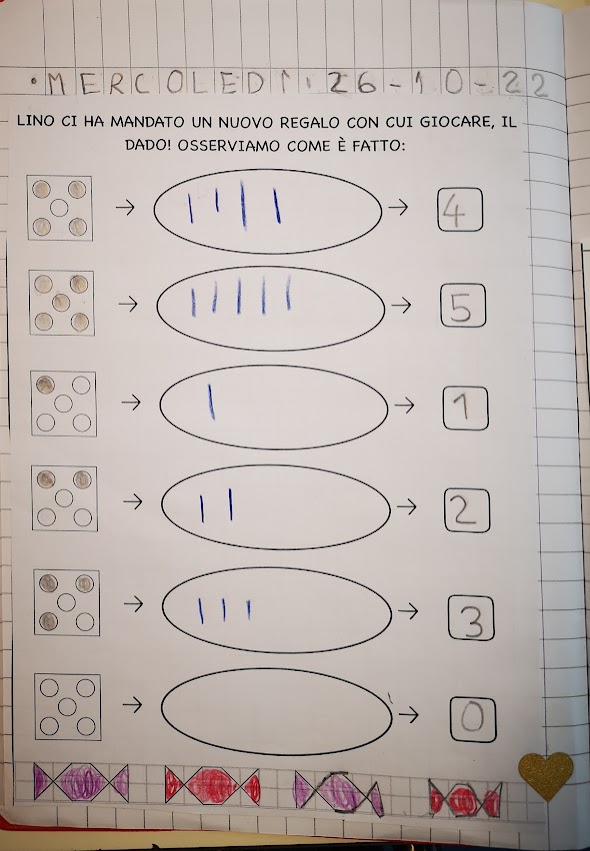 • MERCOLEDÌ: 26-10-22
LINO CI HA MANDATO UN NUOVO REGALO CON CUI GIOCARE, IL
DADO! OSSERVIAMO COME È FATTO:
→ → 4
→ → 5
→ → 1
→ → 2
→ → 3
→ → 0